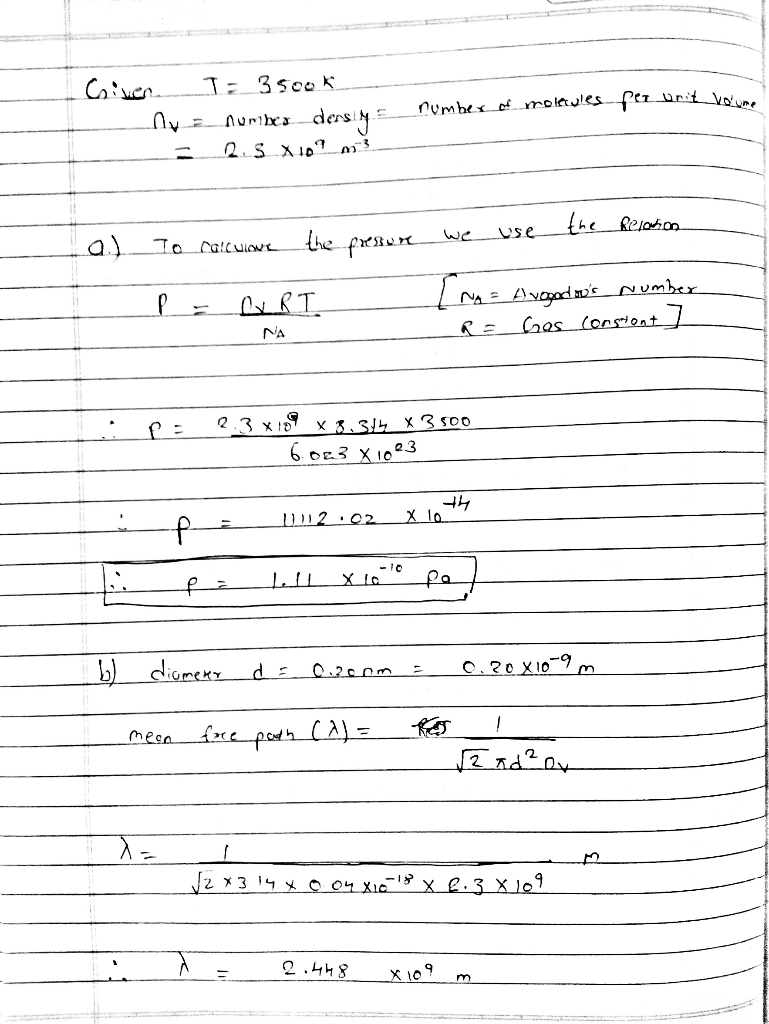 Given T = 3500 K
nv = number density = number of molecules per unit volume
= 2.3 × 10⁹ m⁻³
a.) To calculate the pressure we use the Relation
P = nv RT / NA [NA = Avogadro's Number
R = Gas constant]
∴ P = 2.3 × 10⁹ × 8.314 × 3500 / 6.023 × 10²³
∴ P = 11112.02 × 10⁻¹⁴
∴ P = 1.11 × 10⁻¹⁰ Pa
b) diameter d = 0.20 nm = 0.20 × 10⁻⁹ m
mean free path (λ) = 1 / √2 πd² nv
λ = 1 / √2 × 3.14 × 0.04 × 10⁻¹⁸ × 2.3 × 10⁹ m
∴ λ = 2.448 × 10⁹ m